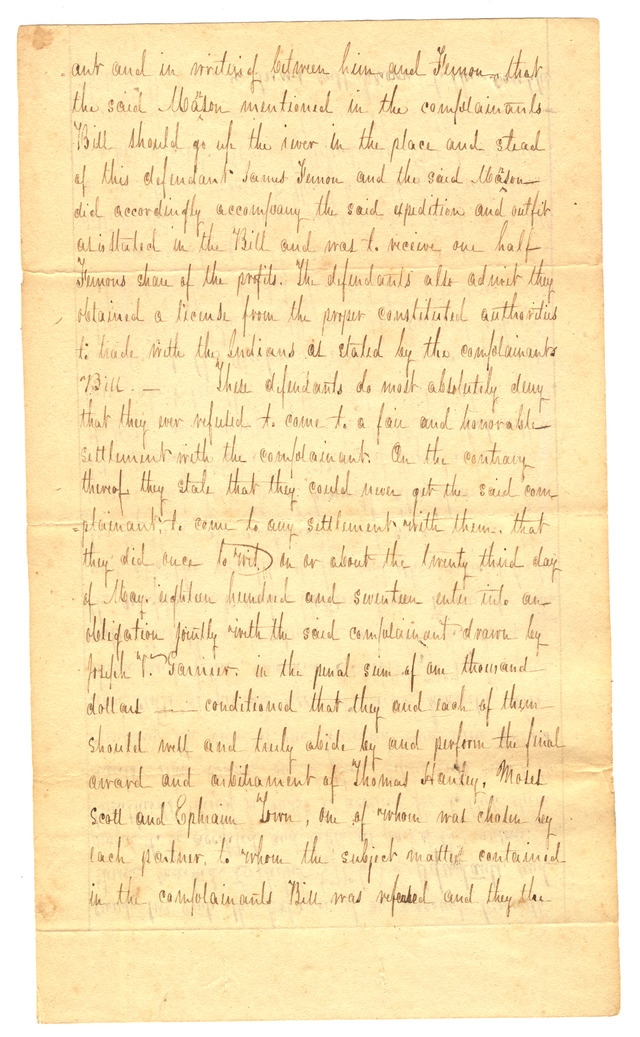 ant and in writing between him and Fernon, that
the said Mason mentioned in the complainants
Bill should go up the river in the place and stead
of this defendant James Fernon and the said Mason
did accordingly accompany the said expedition and outfit
as is stated in the Bill and was to receive one half
Fernons share of the profits. The defendants also admit they
obtained a license from the proper constituted authorities
to trade with the Indians as stated by the complainants
Bill. — These defendants do most absolutely deny
that they ever refused to come to a fair and honorable
settlement with the complainant. On the contrary
thereof they state that they could never get the said com
plainant, to come to any settlement with them. that
they did once to wit, on or about the twenty third day
of May. eighteen hundred and seventeen enter into an
obligation jointly with the said complainant drawn by
Joseph V. Garnier. in the penal sum of one thousand
dollars —— conditioned that they and each of them
should well and truly abide by and perform the final
award and arbitrament of Thomas Hanley, Moses
Scott and Ephraim Town, one of whom was chosen by
each partner, to whom the subject matter contained
in the complainants Bill was refered and they the